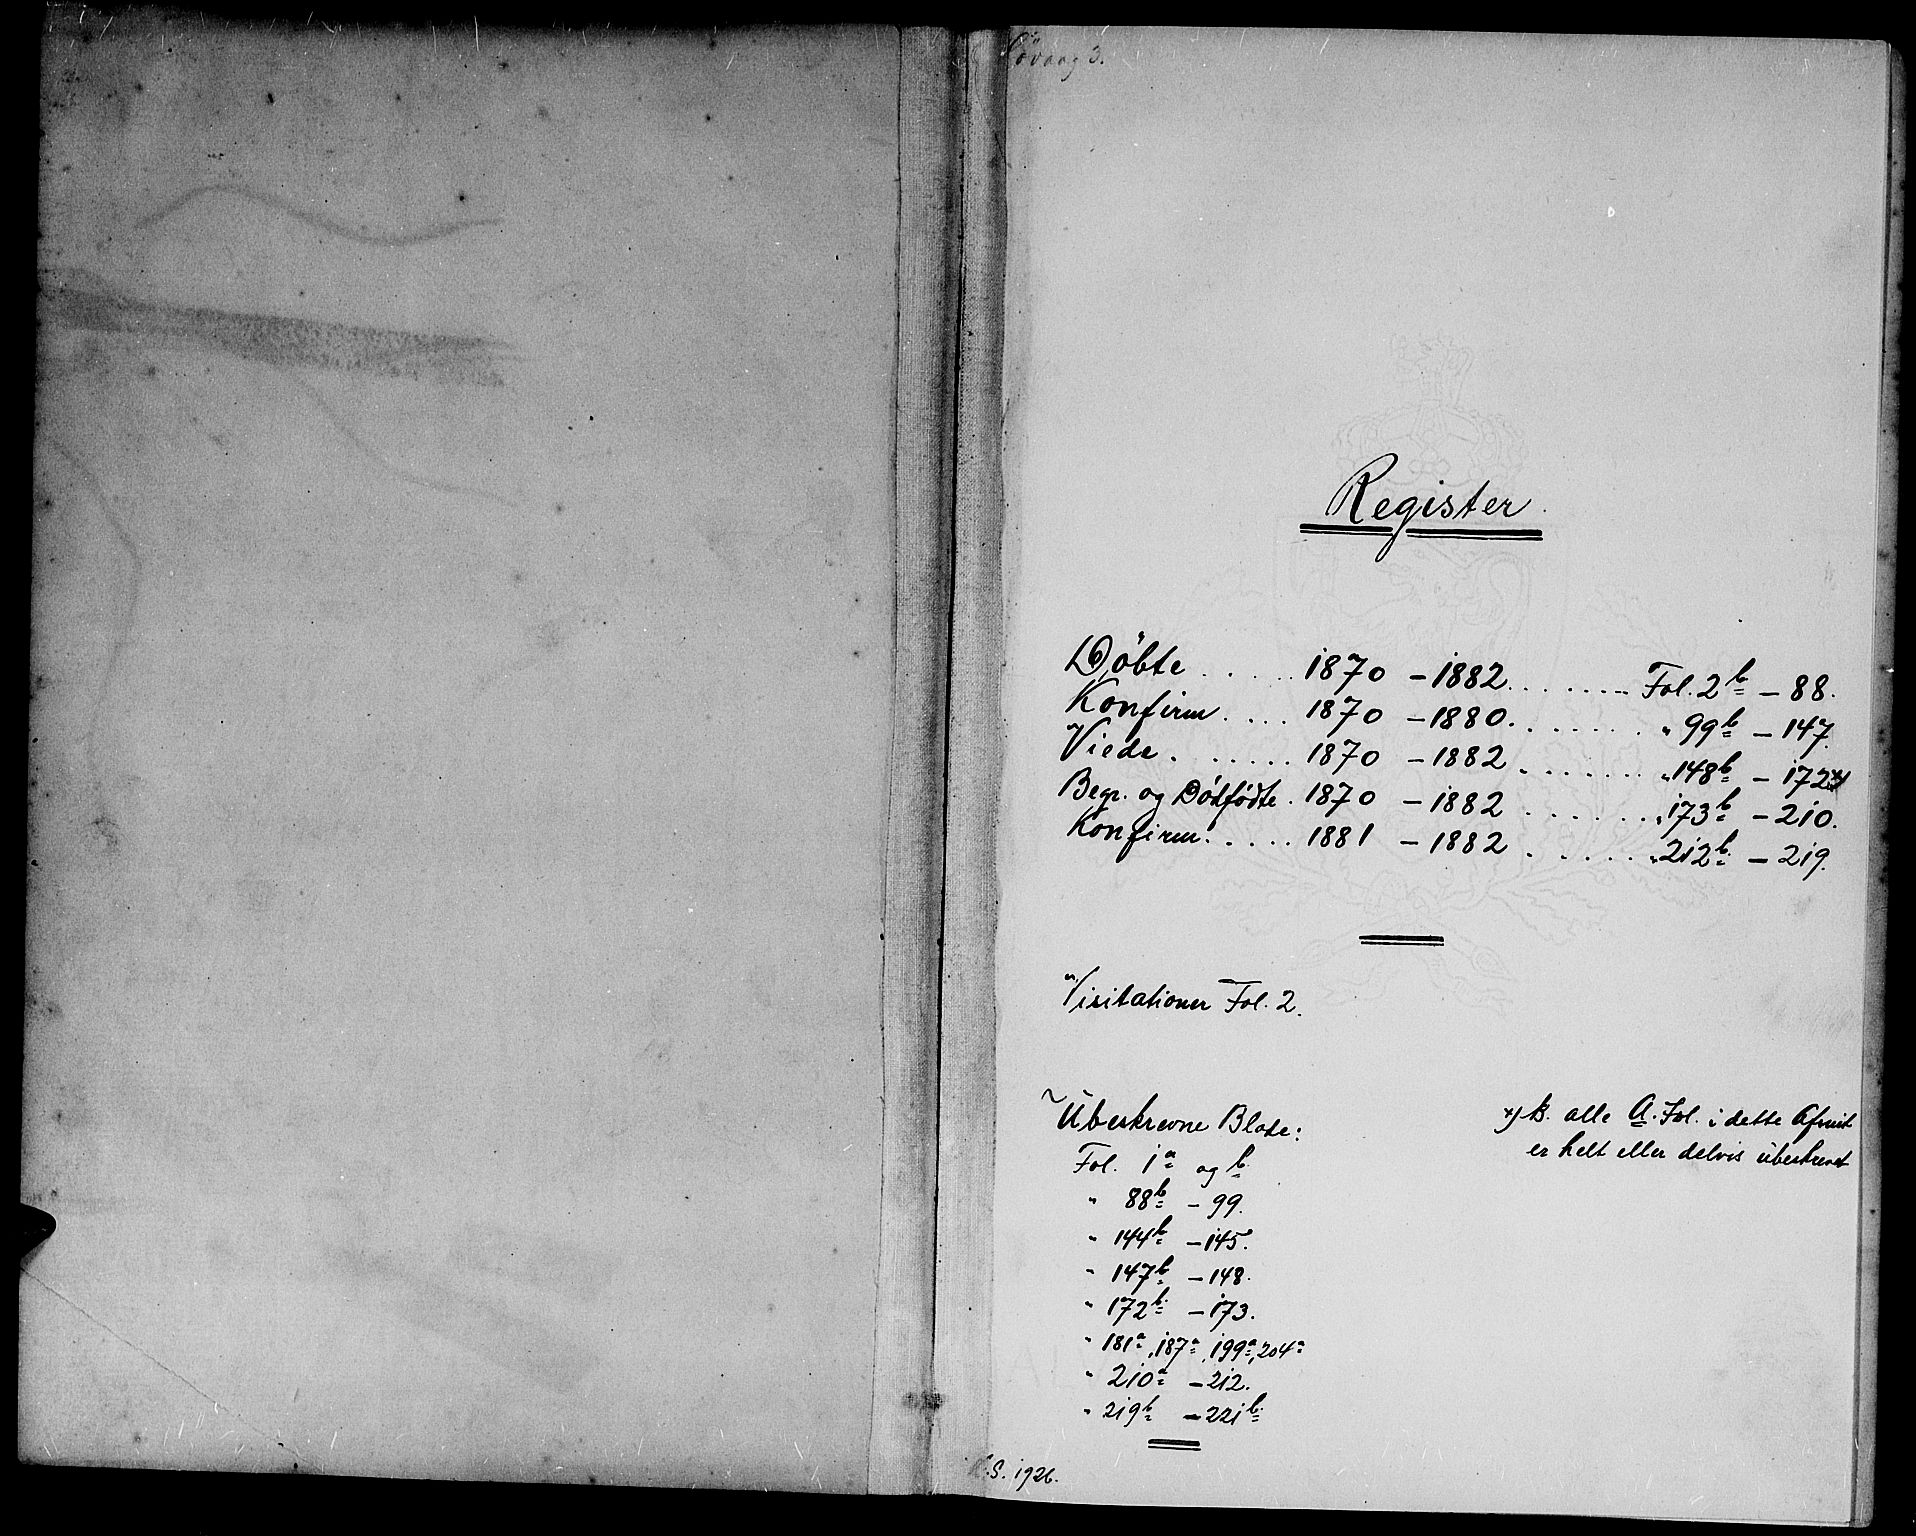 Register
Döbte . . . . . 1870 – 1882 . . . . . . . Fol. 2b – 88.
Konfirm. . . . . 1870 – 1880. . . . . . . " 99b – 147.
Viede . . . . . . 1870 – 1882 . . . . . . . " 148b – 172x)
Begr. og Dödfödte. 1870 – 1882 . . . . . . . " 173b – 210.
Konfirm. . . . . 1881 – 1882 . . . . . . " 212b – 219.
Visitationer Fol. 2.
Ubeskrevne Blade:
Fol. 1a og b.
" 88b – 99.
" 144b – 145.
" 147b – 148.
" 172b – 173.
" 181a, 187a, 199a, 204a
" 210a – 212.
" 219b – 221b
x) alle A. Fol. i dette Afsnit
er helt eller delvis ubeskrevet
S. 1926.